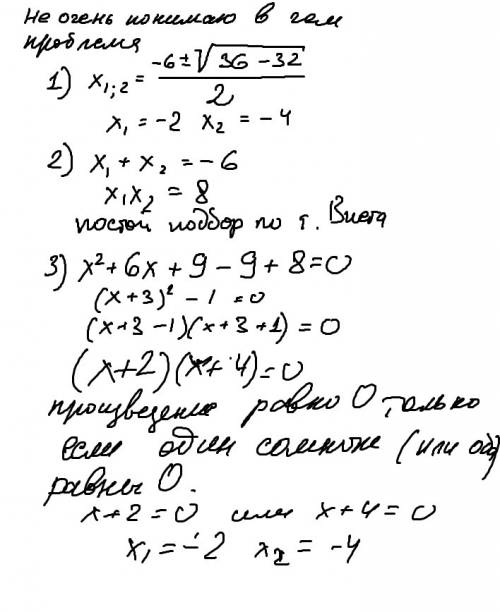 не очень понимаю в чем
проблема
1) x₁;₂ = (-6 ± √(36 - 32)) / 2
x₁ = -2 x₂ = -4
2) x₁ + x₂ = -6
x₁x₂ = 8
постой подбор по т. Виета
3) x² + 6x + 9 - 9 + 8 = 0
(x+3)² - 1 = 0
(x+3 -1)(x+3 +1) = 0
(x+2)(x+4) = 0
произведение равно 0 только
если один сомнож (или оба)
равны 0.
x+2 = 0 или x+4 = 0
x₁ = -2 x₂ = -4